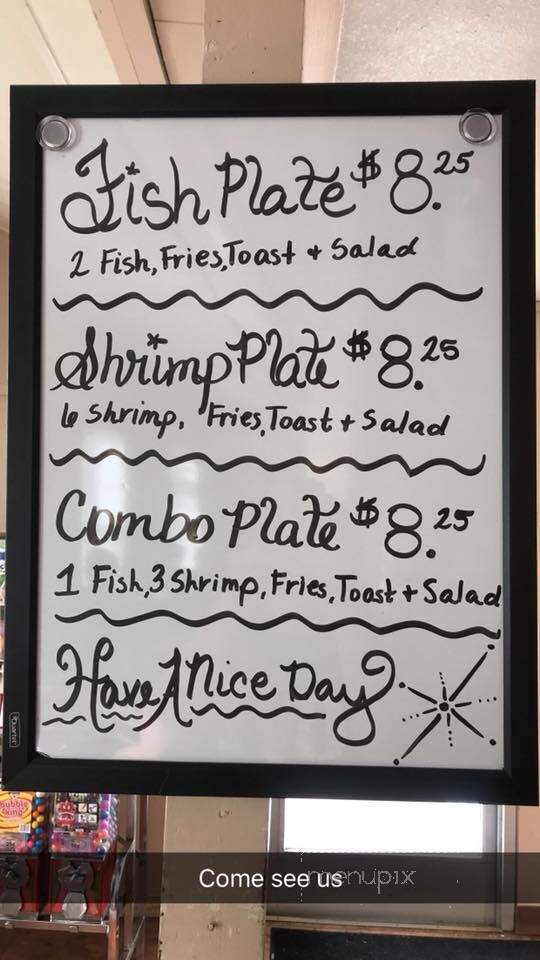 Fish Plate $8.25
2 Fish, Fries, Toast + Salad
Shrimp Plate $8.25
6 Shrimp, Fries, Toast + Salad
Combo Plate $8.25
1 Fish, 3 Shrimp, Fries, Toast + Salad
Have A Nice Day
Quartet
bubble king
Come see us
menupix